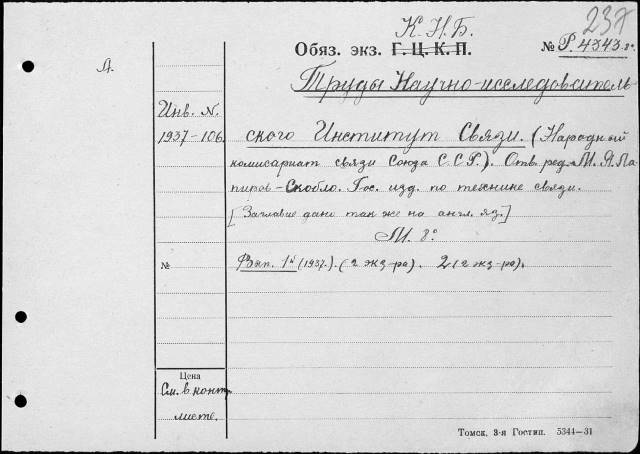 237
К.Н.Б.
Обяз. экз. Г. Ц. К. П. № P.4343.8°
А.
Труды Научно-исследователь-
Инв. N.
1937-106
ского Институт Связи. (Народный
комисариат связи Союза С.С.Р.). Отв. ред. М. Я. Па-
пиров-Скобло. Гос. изд. по технике связи.
[Заглавие дано так же на англ. яз.]
М. 8°
№ Вып. 1 (1937.) (2 экз-ра). 2 (2 экз-ра).
Цена
См. в конт.
листе.
Томск, 3-я Гостип. 5344—31